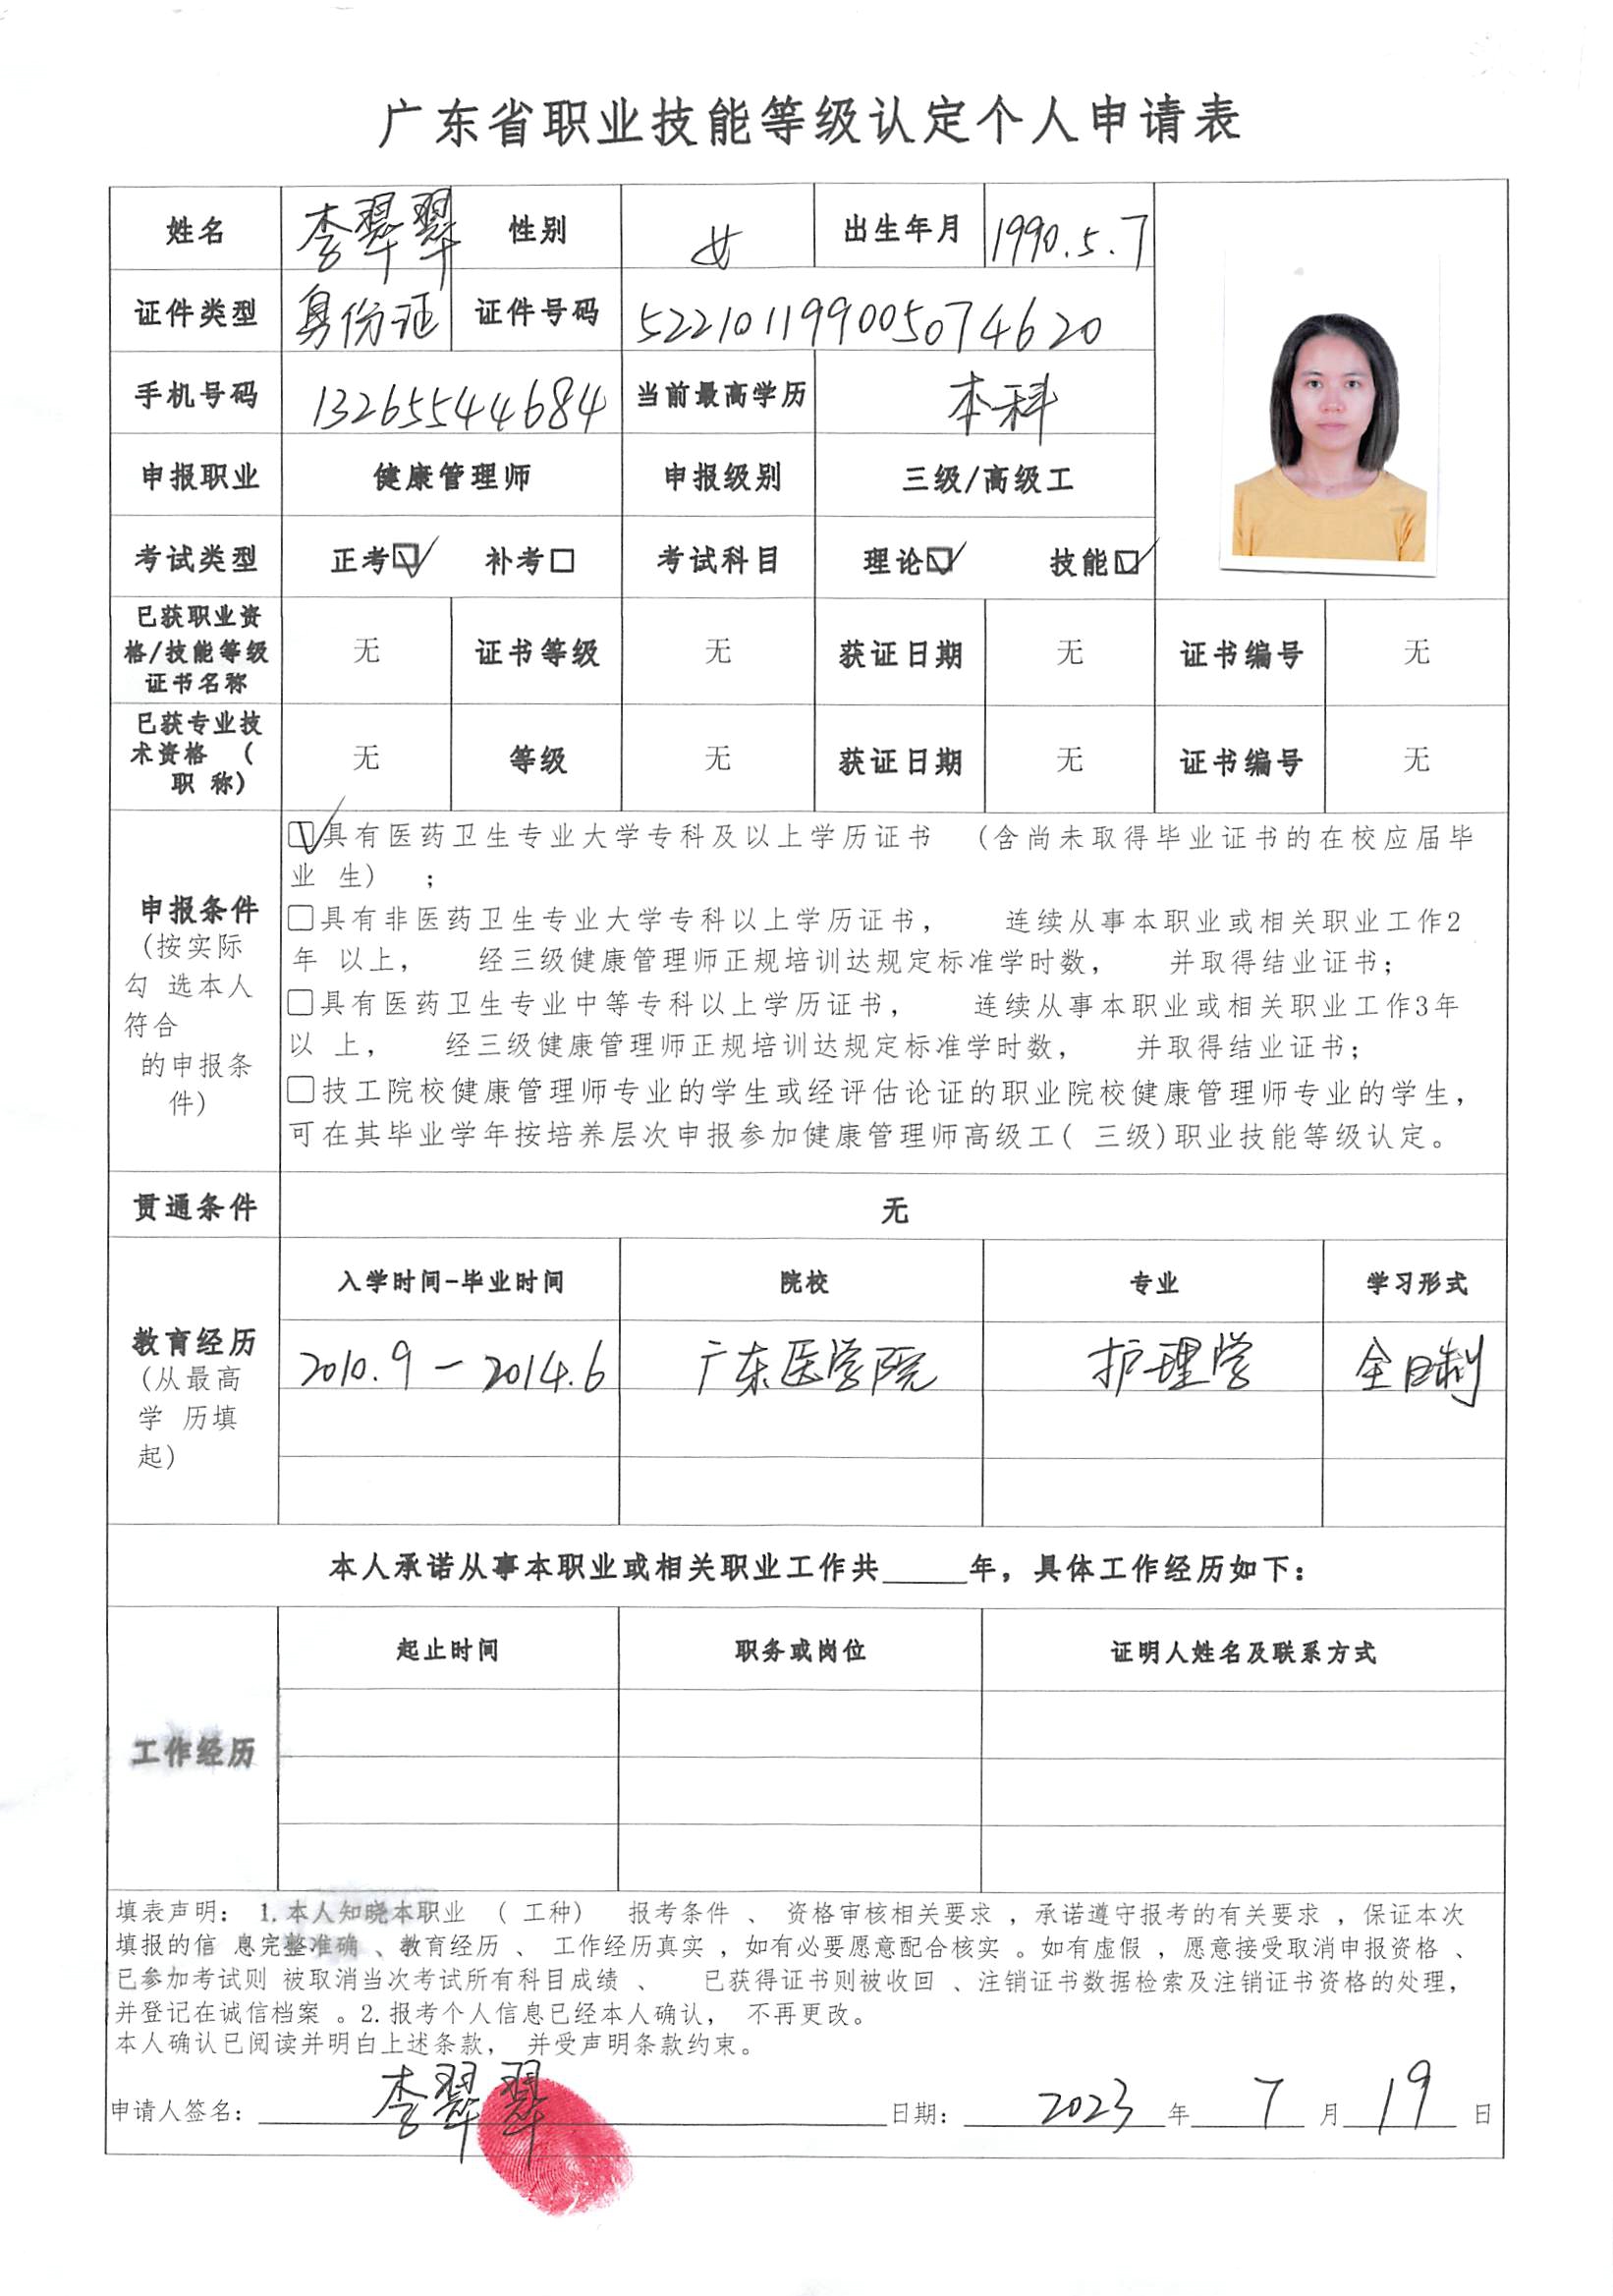 广东省职业技能等级认定个人申请表
姓名 李翠翠 性别 女 出生年月 1990.5.7
证件类型 身份证 证件号码 522101199005074620
手机号码 13265544684 当前最高学历 本科
申报职业 健康管理师 申报级别 三级/高级工
考试类型 正考☑ 补考□ 考试科目 理论☑ 技能☑
已获职业资
格/技能等级
证书名称 无 证书等级 无 获证日期 无 证书编号 无
已获专业技
术资格 (
职 称) 无 等级 无 获证日期 无 证书编号 无
申报条件
(按实际
勾 选本人
符合
的申报条
件)
☑具有医药卫生专业大学专科及以上学历证书 (含尚未取得毕业证书的在校应届毕
业 生) ;
□具有非医药卫生专业大学专科以上学历证书, 连续从事本职业或相关职业工作2
年 以上, 经三级健康管理师正规培训达规定标准学时数, 并取得结业证书;
□具有医药卫生专业中等专科以上学历证书, 连续从事本职业或相关职业工作3年
以 上, 经三级健康管理师正规培训达规定标准学时数, 并取得结业证书;
□技工院校健康管理师专业的学生或经评估论证的职业院校健康管理师专业的学生,
可在其毕业学年按培养层次申报参加健康管理师高级工( 三级)职业技能等级认定。
贯通条件 无
教育经历
(从最高
学 历填
起)
入学时间-毕业时间 院校 专业 学习形式
2010.9 — 2014.6 广东医学院 护理学 全日制
本人承诺从事本职业或相关职业工作共_____年，具体工作经历如下：
工作经历
起止时间 职务或岗位 证明人姓名及联系方式
填表声明: 1.本人知晓本职业 ( 工种) 报考条件 、 资格审核相关要求 , 承诺遵守报考的有关要求 , 保证本次
填报的信 息完整准确 、教育经历 、 工作经历真实 , 如有必要愿意配合核实 。如有虚假 , 愿意接受取消申报资格 、
已参加考试则 被取消当次考试所有科目成绩 、 已获得证书则被收回 、注销证书数据检索及注销证书资格的处理,
并登记在诚信档案 。2.报考个人信息已经本人确认, 不再更改。
本人确认已阅读并明白上述条款, 并受声明条款约束。
申请人签名: 李翠翠 日期: 2023 年 7 月 19 日